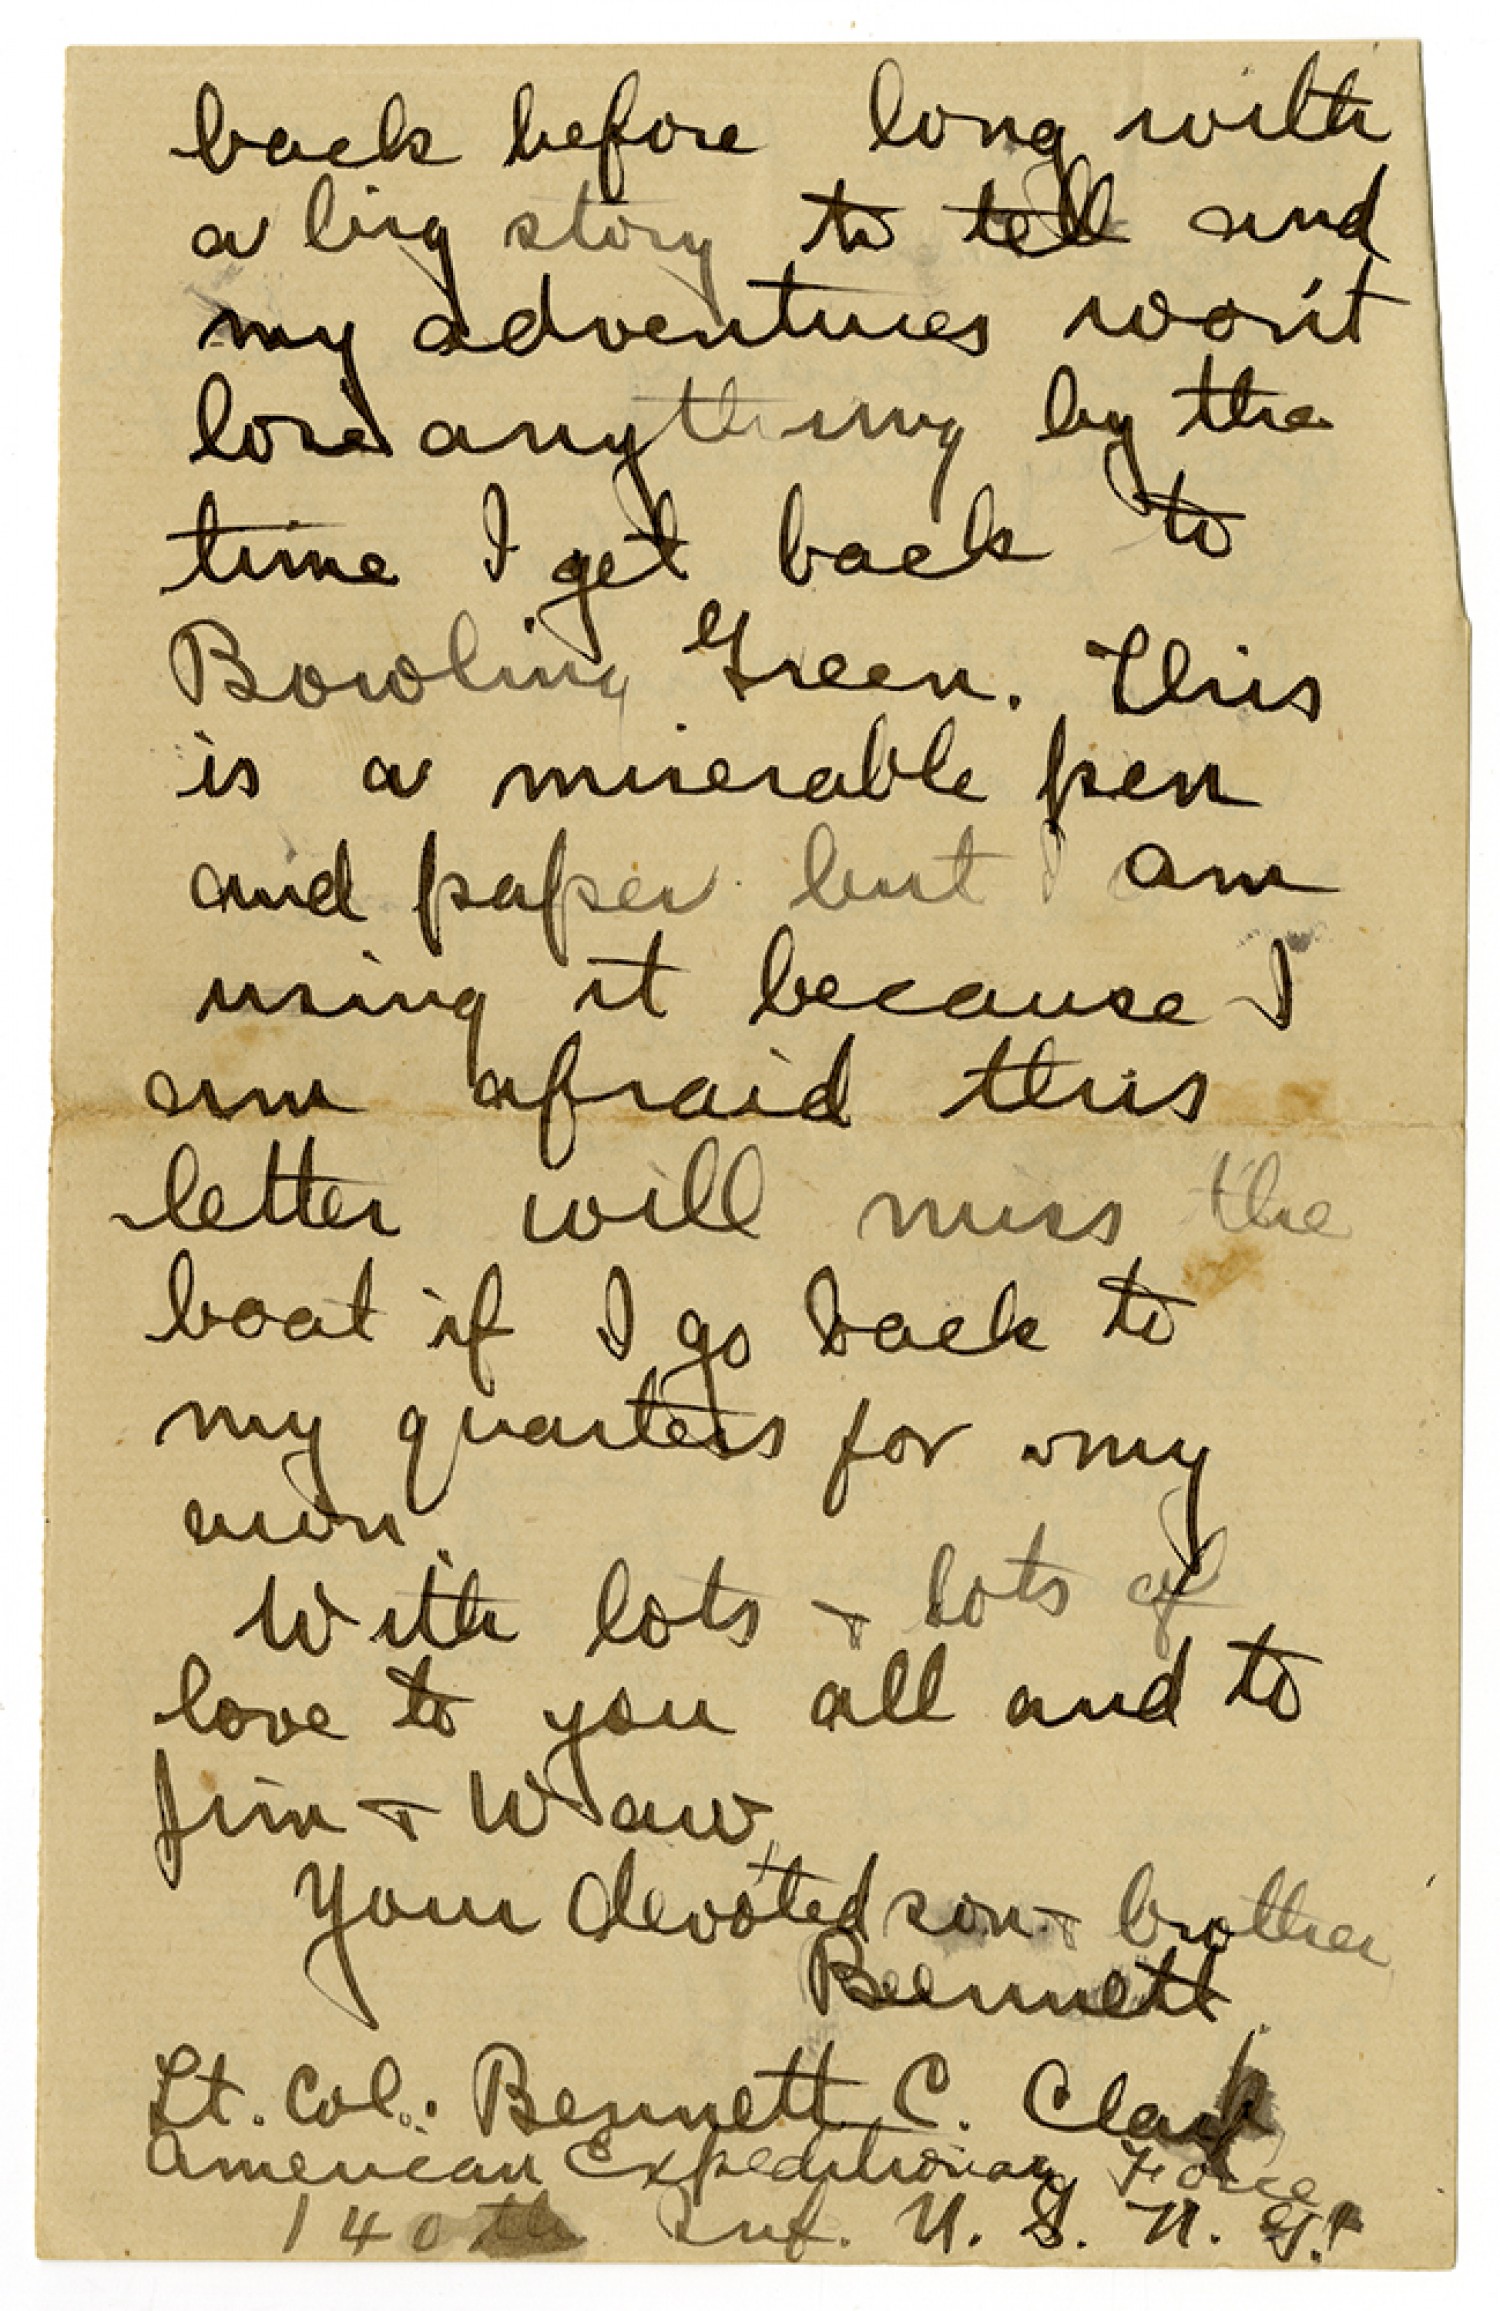 back before long with
a big story to tell and
my adventures won't
lose anything by the
time I get back to
Bowling Green. This
is a miserable pen
and paper but I am
using it because I
am afraid this
letter will miss the
boat if I go back to
my quarters for my
own
With lots & lots of
love to you all and to
Jim & Waw,
Your devoted son & brother
Bennett.
Lt. Col. Bennett C. Clark
American Expeditionary Force
140th Inf. U. S. N. G.